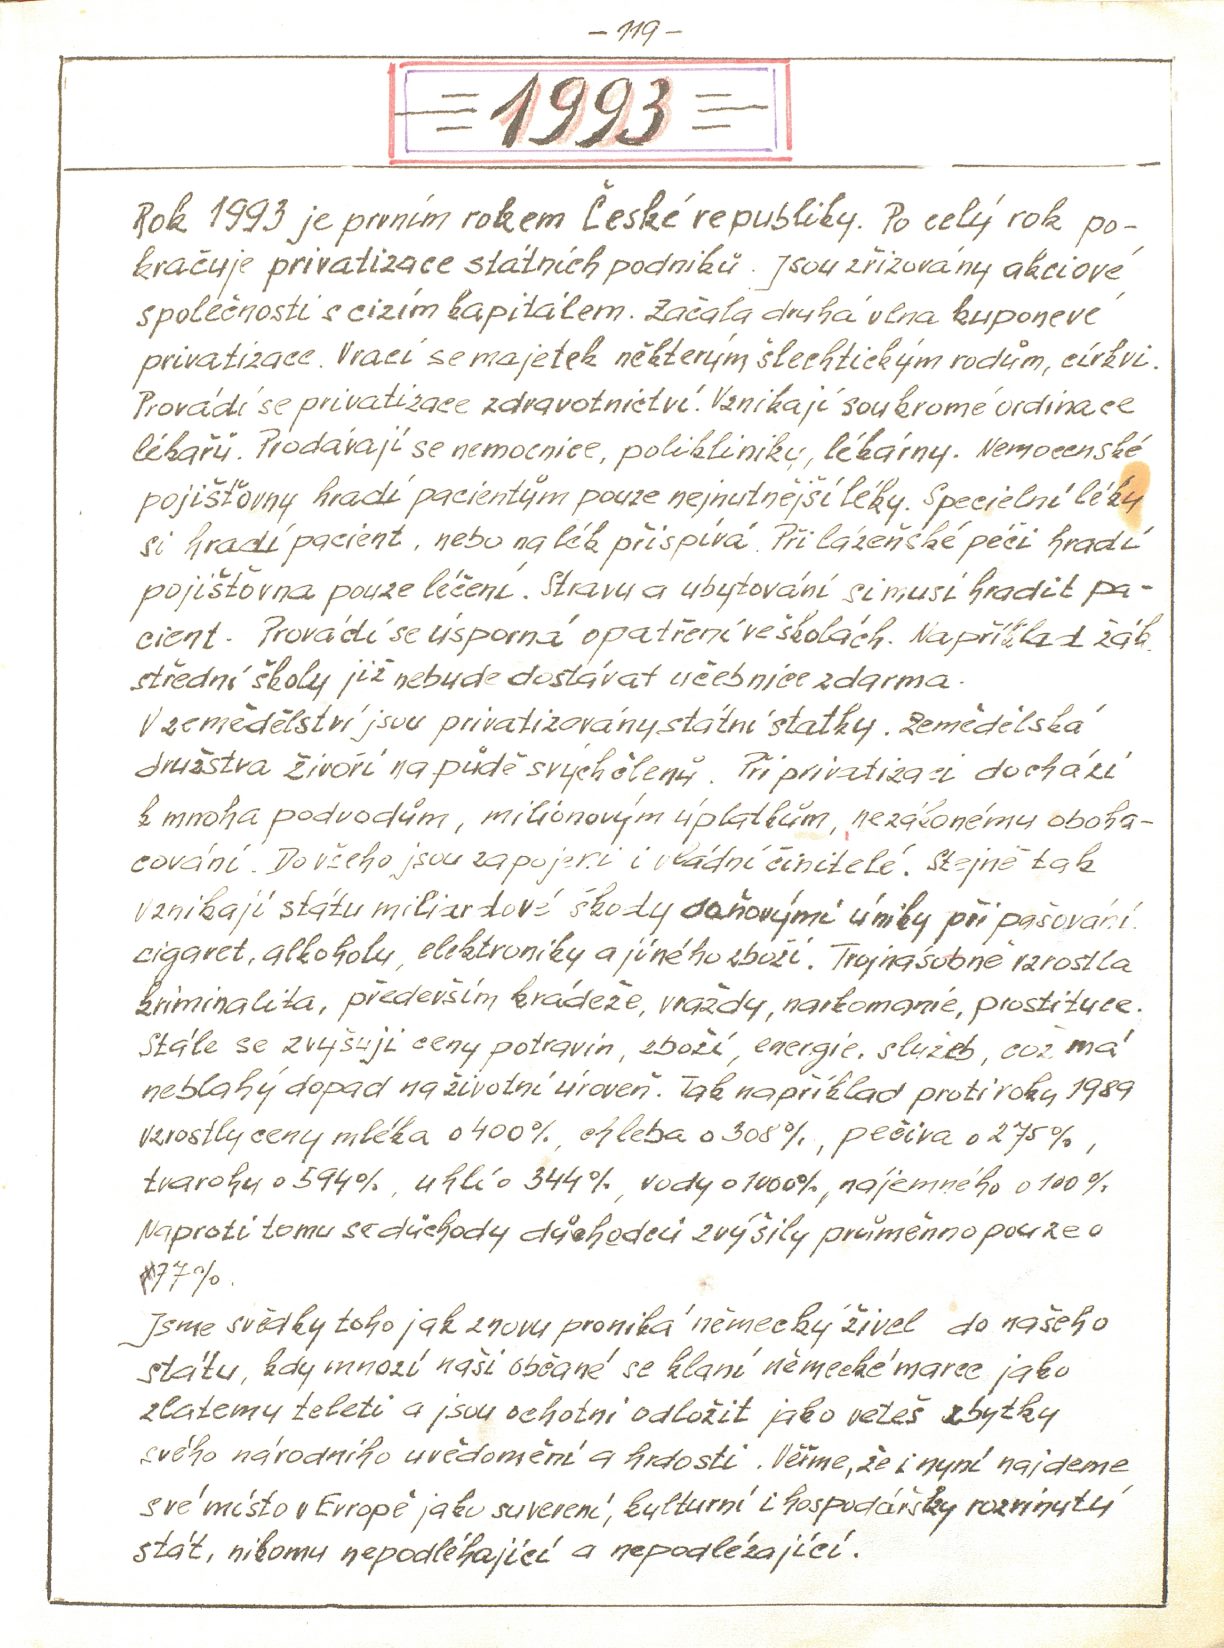 - 119 -
1993
Rok 1993 je prvním rokem České republiky. Po celý rok po-
kračuje privatizace státních podniků. Jsou zřizovány akciové
společnosti s cizím kapitálem. Začala druhá vlna kuponové
privatizace. Vrací se majetek některým šlechtickým rodům, církvi.
Provádí se privatizace zdravotnictví. Vznikají soukromé ordinace
lékařů. Prodávají se nemocnice, polikliniky, lékárny. Nemocenské
pojišťovny hradí pacientům pouze nejnutnější léky. Specielní léky
si hradí pacient, nebo na lék přispívá. Při lázeňské péči hradí
pojišťovna pouze léčení. Stravu a ubytování si musí hradit pa-
cient. Provádí se úsporná opatření ve školách. Například žák
střední školy již nebude dostávat učebnice zdarma.
V zemědělství jsou privatizovány státní statky. Zemědělská
družstva živoří na půdě svých členů. Při privatizaci dochází
k mnoha podvodům, miliónovým úplatkům, nezákonému oboha-
cování. Do všeho jsou zapojeni i vládní činitelé. Stejně tak
vznikají státu miliardové škody daňovými úniky při pašování
cigaret, alkoholu, elektroniky a jiného zboží. Trojnásobně vzrostla
kriminalita, především krádeže, vraždy, narkomanie, prostituce.
Stále se zvyšují ceny potravin, zboží, energie, služeb, což má
neblahý dopad na životní úroveň. Tak například proti roku 1989
vzrostly ceny mléka o 400%, chleba o 308%, pečiva o 275%,
tvarohu o 594%, uhlí o 344%, vody o 1000%, nájemného o 100%
Naproti tomu se důchody důchodců zvýšily průměnno pouze o
77%.
Jsme svědky toho jak znovu proniká německý živel do našeho
státu, kdy mnozí naši občané se klaní německé marce jako
zlatemu teleti a jsou ochotni odložit jako veteš zbytky
svého národního uvědomění a hrdosti. Věříme, že i nyní najdeme
své místo v Evropě jako suverení, kulturní i hospodářsky rozvinutý
stát, nikomu nepodléhající a nepodlézající.